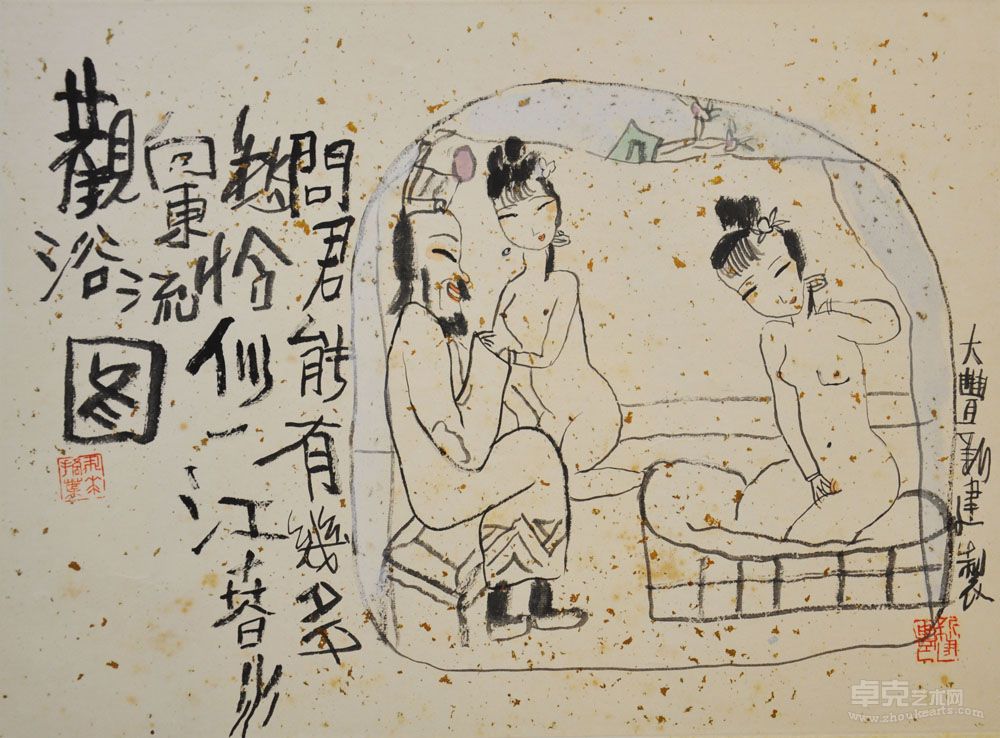 問君能有幾多
愁恰似一江春水
向東流
觀浴图
大豐新建製
卓克艺术网
www.zhoukearts.com